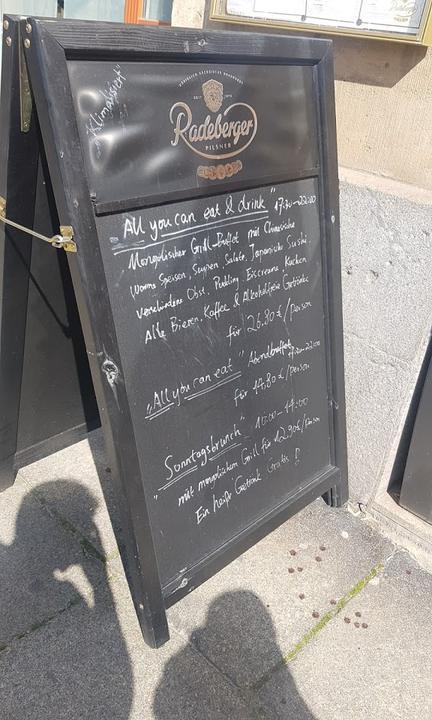 "Klimatisiert"
Radeberger
PILSNER
"All you can eat & drink" 17:30-22:00
Mongolischer Grill-Buffet mit Chinesische
Warme Speisen, Suppen, Salate, Japanische Sushi
verschiedene Obst, Pudding, Eiscreme, Kuchen
Alle Bieren, Kaffee & Alkoholfreie Getränke
für 26.80 €/person
"All you can eat" Abendbuffet
17:30-22:00
für 14.80 €/person
"Sonntagsbrunch" 10:00-14:00
mit mongolischem Grill für 12.90€/Person
Ein heiße Getränk Gratis !